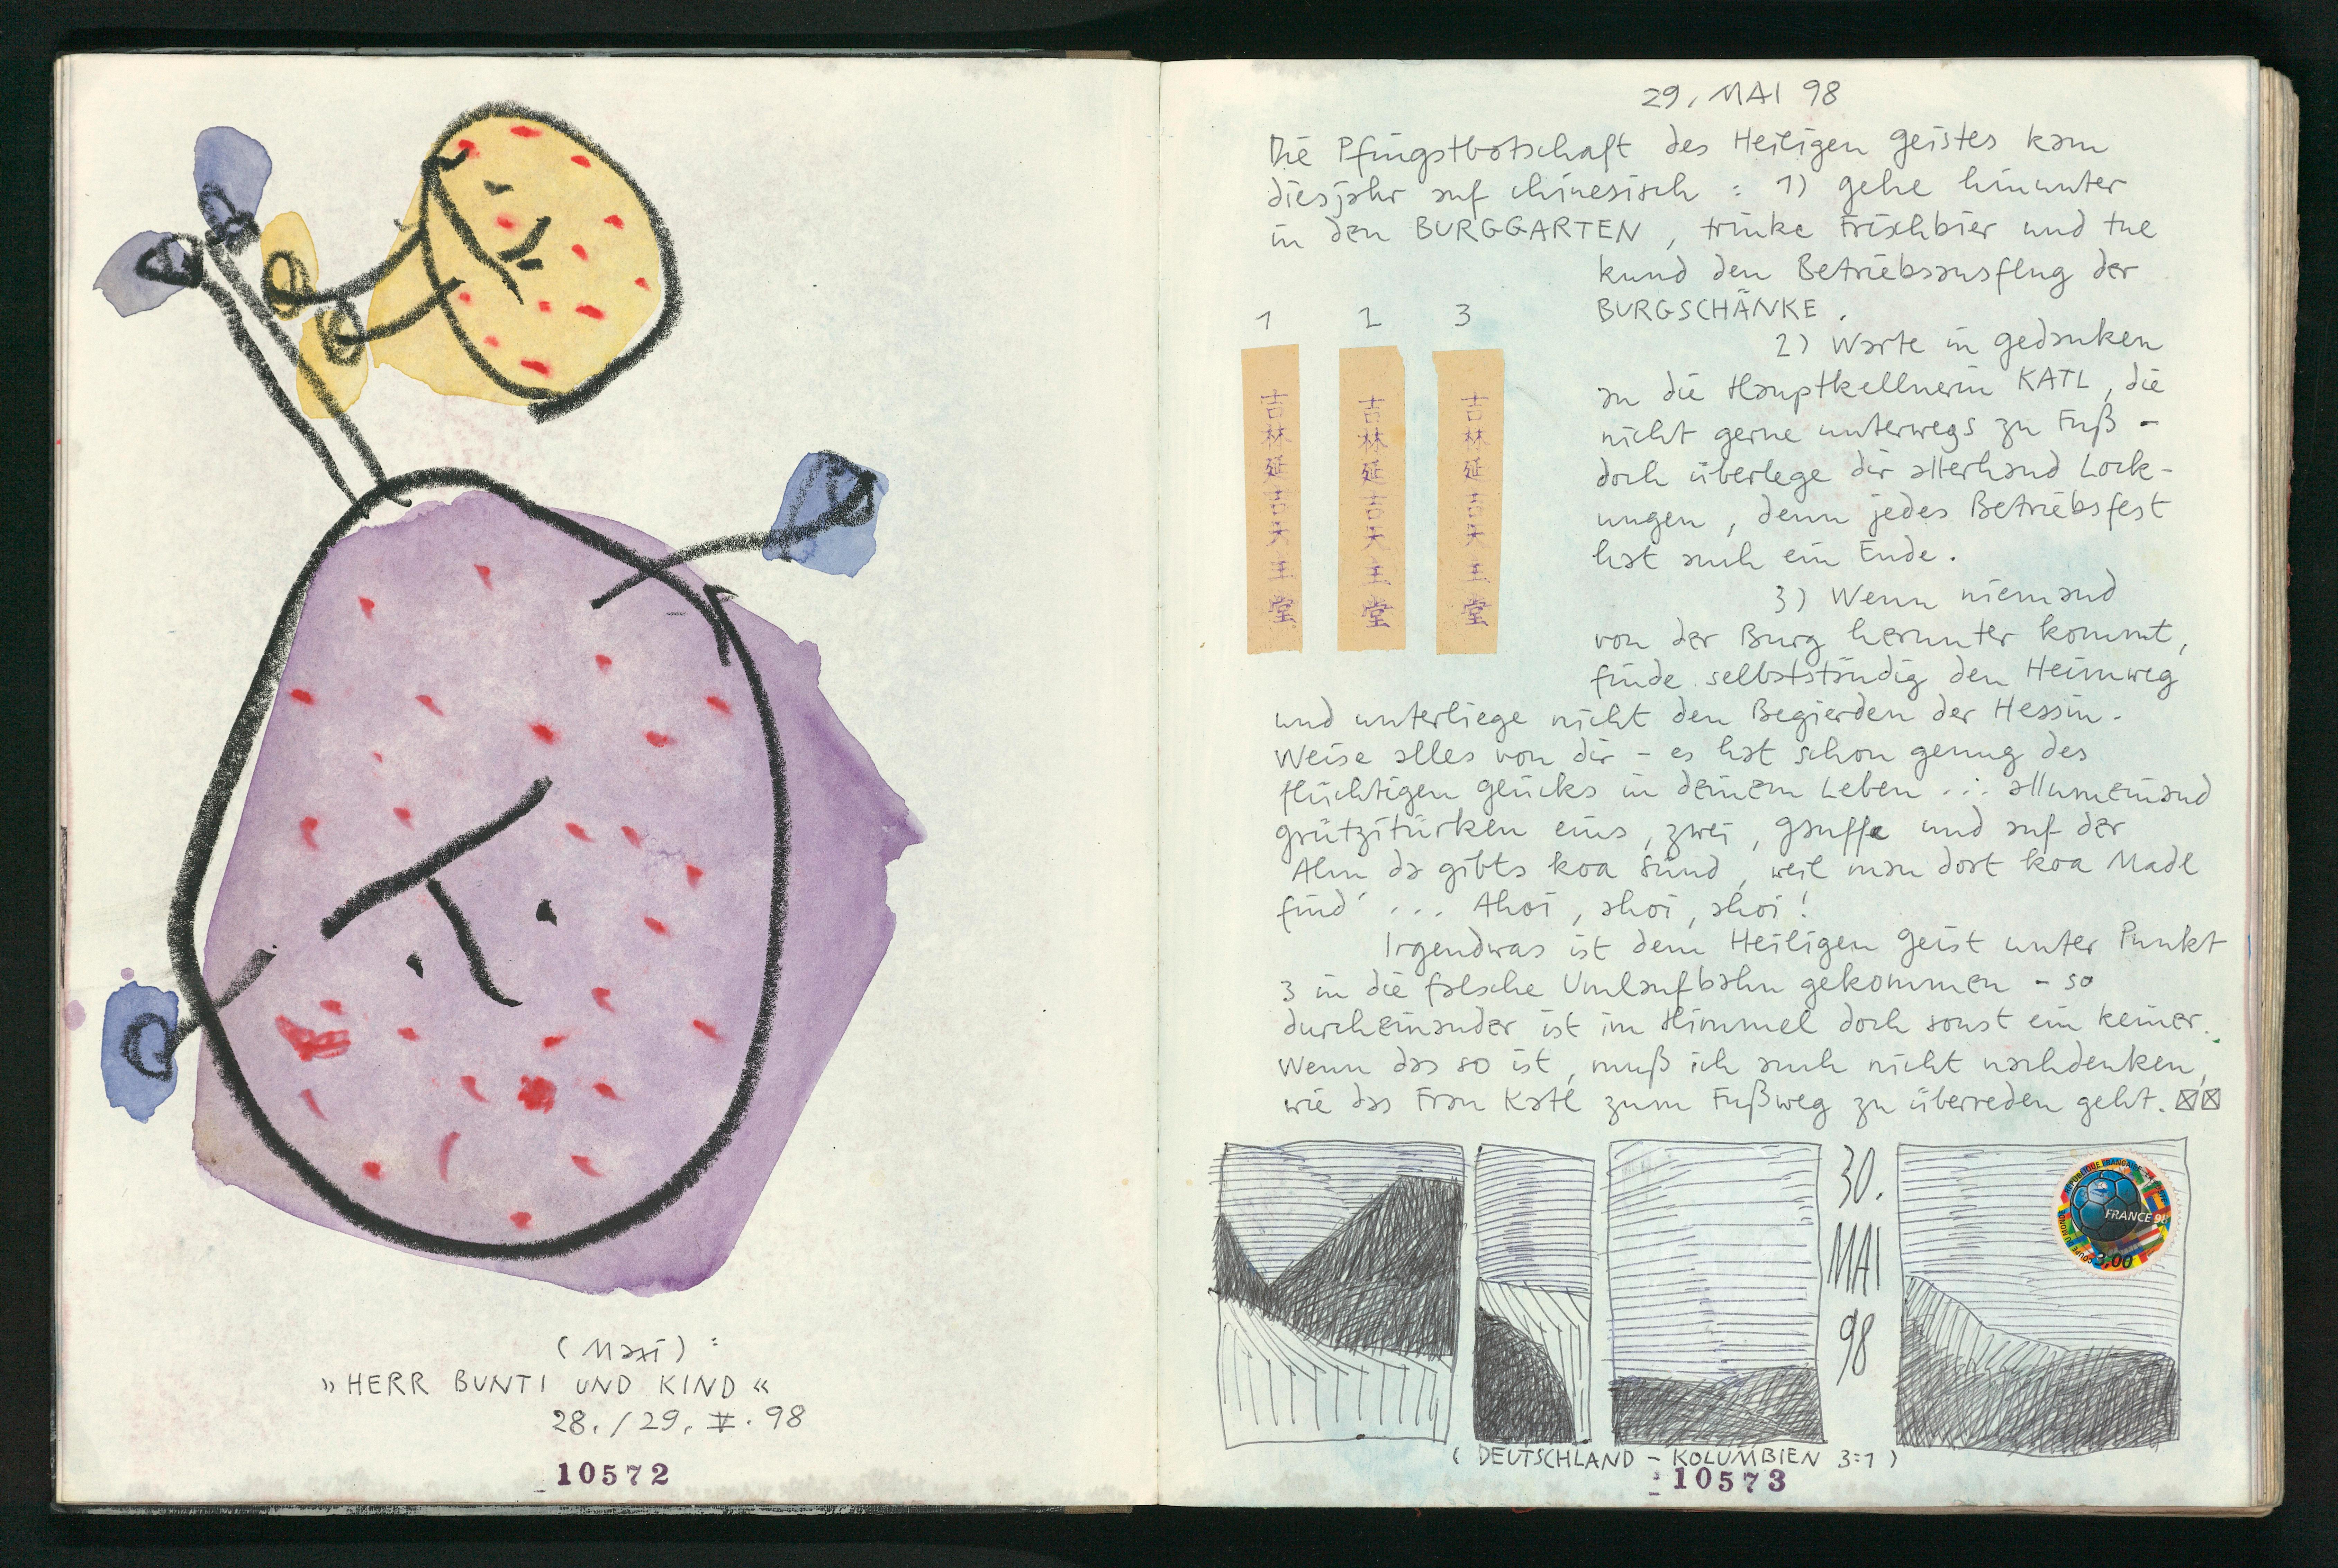 (Maxi):
»HERR BUNTI UND KIND«
28./29. V. 98
10572
29. MAI 98
Die Pfingstbotschaft des Heiligen Geistes kam
diesjahr auf chinesisch : 1) gehe hinunter
in den BURGGARTEN, trinke Frischbier und tue
kund den Betriebsausflug der
BURGSCHÄNKE.
2) Warte in gedanken
an die Hauptkellnerin KATL, die
nicht gerne unterwegs zu Fuß –
doch überlege dir allerhand Lock-
ungen, denn jedes Betriebsfest
hat auch ein Ende.
3) Wenn niemand
von der Burg herunter kommt,
finde selbstständig den Heimweg
1 2 3
吉林延吉天主堂
吉林延吉天主堂
吉林延吉天主堂
und unterliege nicht den Begierden der Hessin.
Weise alles von dir – es hat schon genug des
flüchtigen glücks in deinem Leben ... allumeinand
grützitürken eins, zwei, gsuffa und auf der
Alm da gibts koa Sünd, weil man dort koa Madl
find' ... Ahoi, ahoi, ahoi!
Irgendwas ist dem Heiligen Geist unter Punkt
3 in die falsche Umlaufbahn gekommen – so
durcheinander ist im Himmel doch sonst ein keiner.
Wenn das so ist, muß ich auch nicht nachdenken,
wie das Frau Katl zum Fußweg zu überreden geht.
30.
MAI
98
RÉPUBLIQUE FRANÇAISE LA POSTE
FRANCE 98
COUPE DU MONDE
3,00
(DEUTSCHLAND – KOLUMBIEN 3:1)
10573